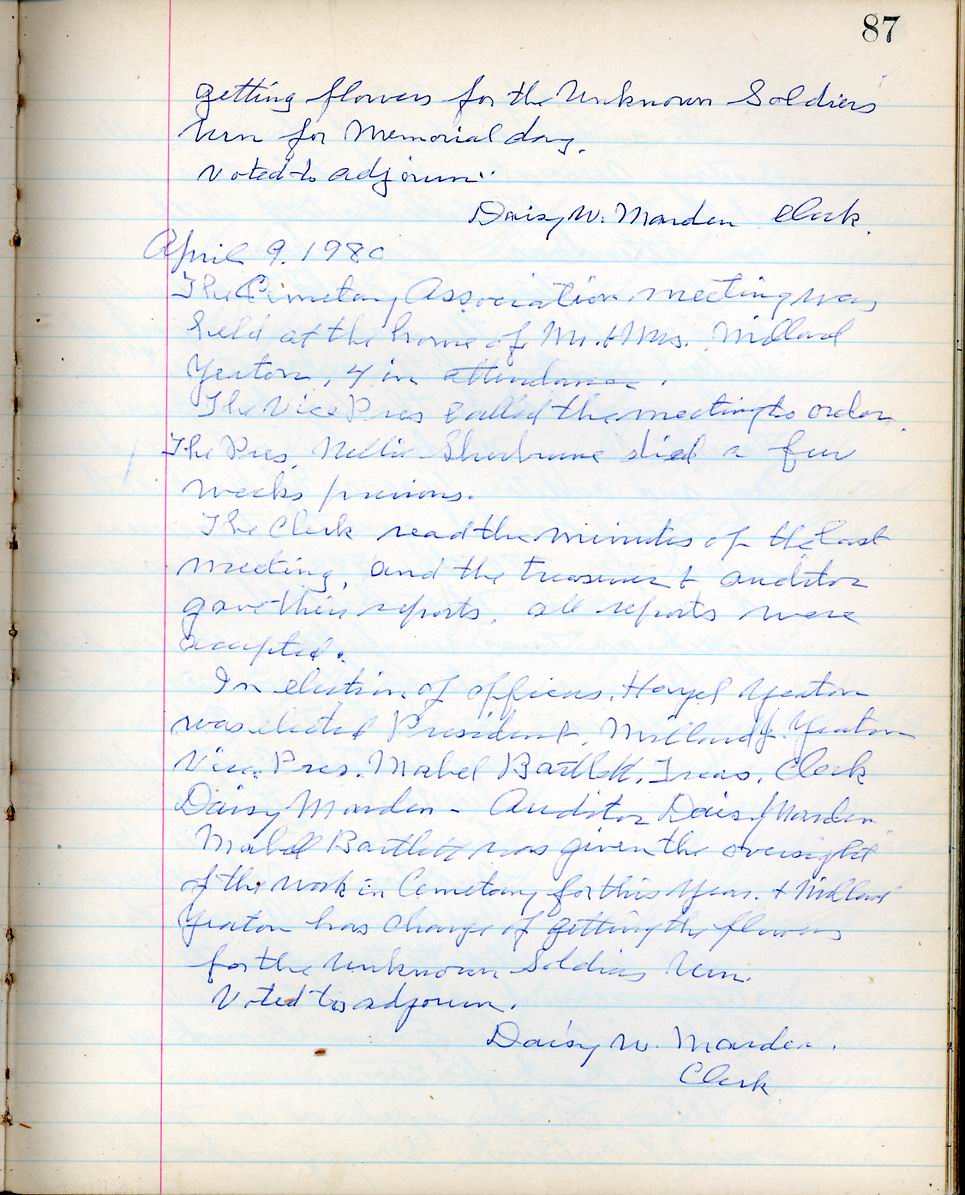 87
getting flowers for the Unknown Soldiers
Urn for Memorial day.
Voted to adjourn.
Daisy W. Marden Clerk.
April 9. 1980
The Cimetary Association meeting was
held at the home of Mr. & Mrs. Millard
Yeaton, 4 in attendance.
The Vice Pres called the meeting to order.
The Pres. Nellie died a few
weeks previous.
The Clerk read the minutes of the last
meeting, and the treasurer & auditor
gave their reports. all reports were
accepted.
In election of officers, Hazel Yeaton
was elected President, Millard Yeaton
Vice. Pres. Mabel Bartlett, Treas. Clerk
Daisy Marden - Auditor Daisy Marden
Mabel Bartlett was given the oversight
of the work in Cemetary for this year. & Millard
Yeaton has charge of getting the flowers
for the Unknown Soldiers Urn.
Voted to adjourn.
Daisy W. Marden.
Clerk